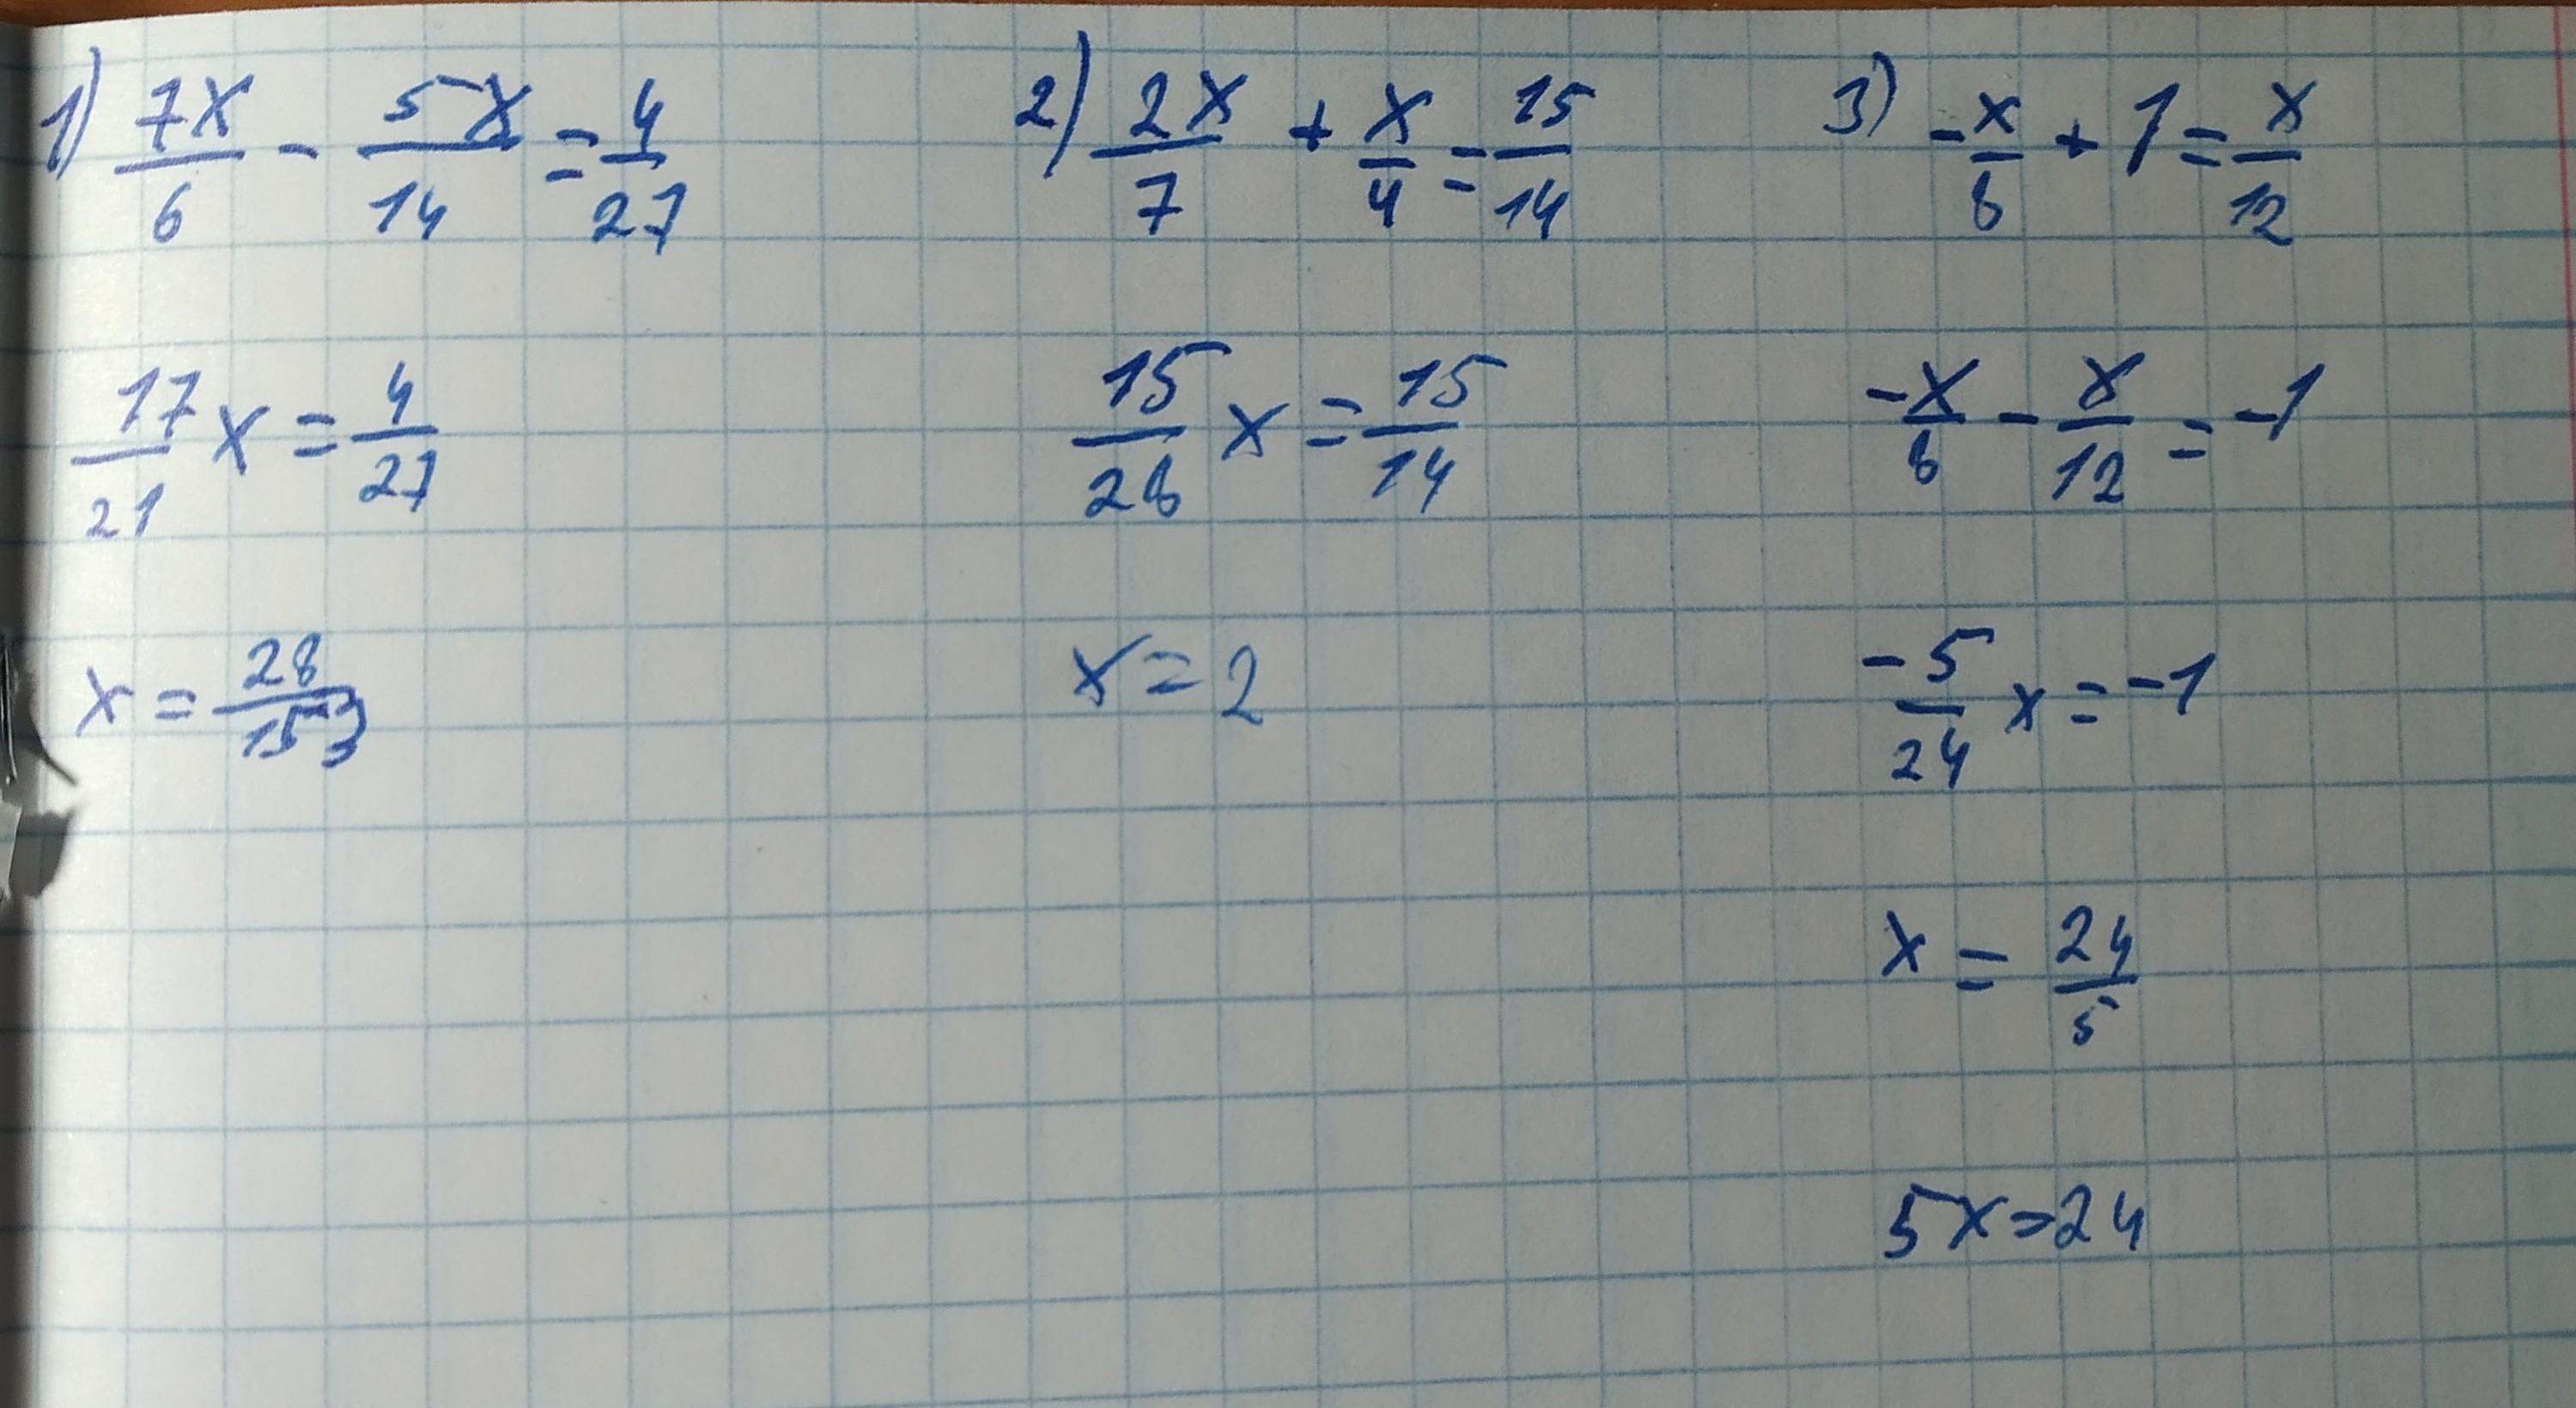 1) 7x/6 - 5x/14 = 4/27
17/21 x = 4/27
x = 28/153
2) 2x/7 + x/4 = 15/14
15/28 x = 15/14
x = 2
3) -x/8 + 1 = x/12
-x/8 - x/12 = -1
-5/24 x = -1
x = 24/5
5x = 24